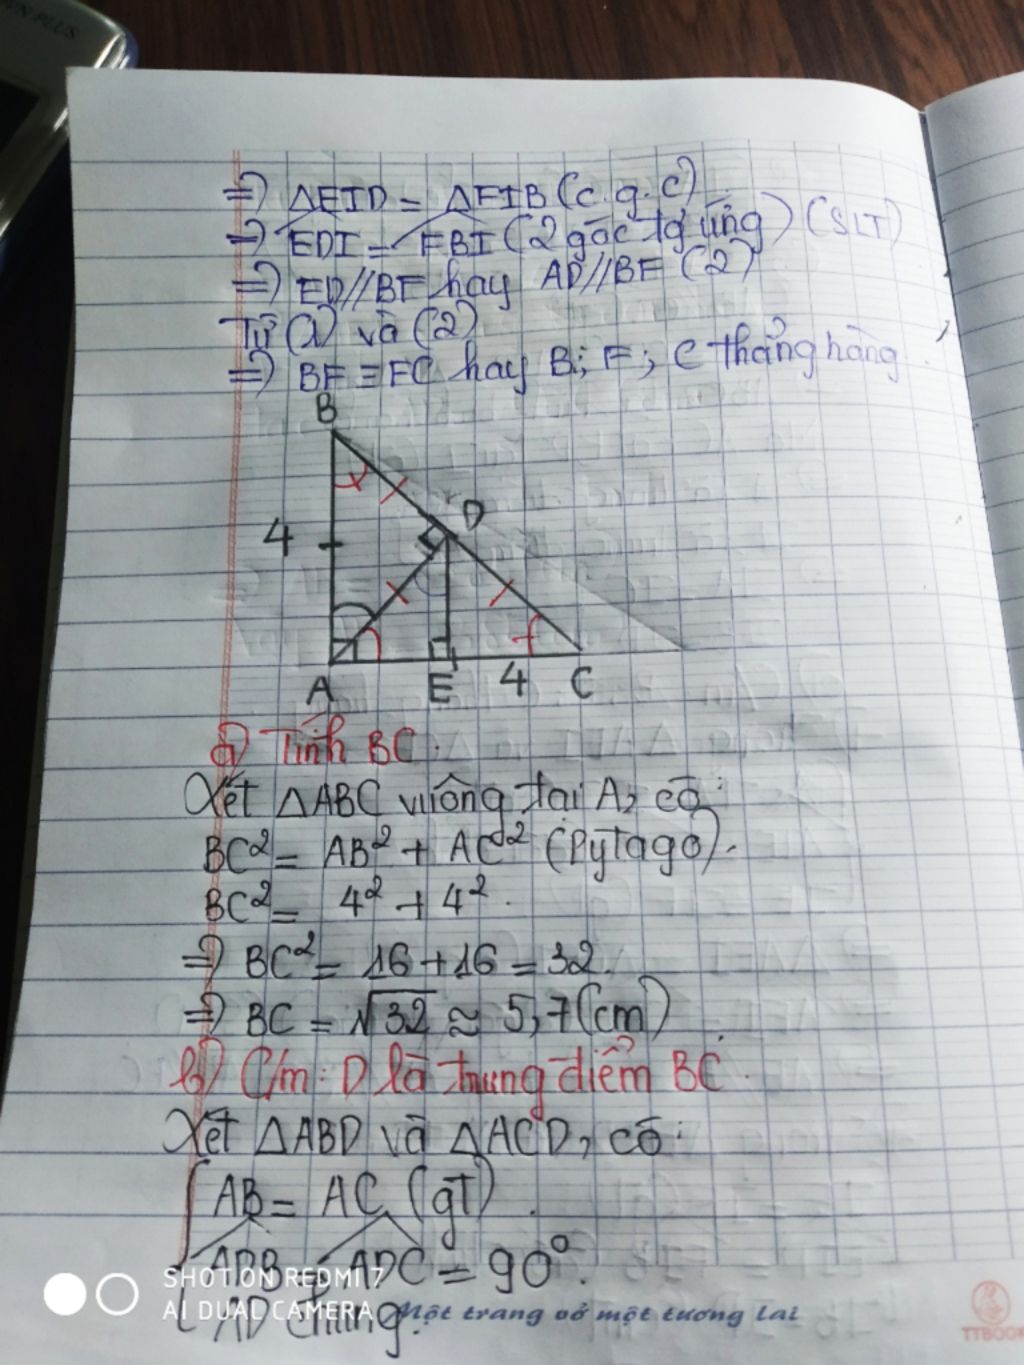 => ΔEID = ΔFIB (c.g.c)
=> EDI = FBI (2 góc tg ứng) (SLT)
=> ED//BF hay AD//BF (2)
Từ (1) và (2)
=> BF ≡ FC hay B; F; C thẳng hàng.
B
4
D
A
E
4
C
a) Tính BC.
Xét ΔABC vuông tại A, có:
BC² = AB² + AC² (Pytago).
BC² = 4² + 4².
=> BC² = 16 + 16 = 32.
=> BC = √32 ≈ 5,7 (cm).
b) C/m: D là trung điểm BC.
Xét ΔABD và ΔACD, có:
AB = AC (gt).
ADB = ADC = 90°.
AD chung.
SHOT ON REDMI 7
AI DUAL CAMERA
Một trang vở một tương lai
TTBOOK